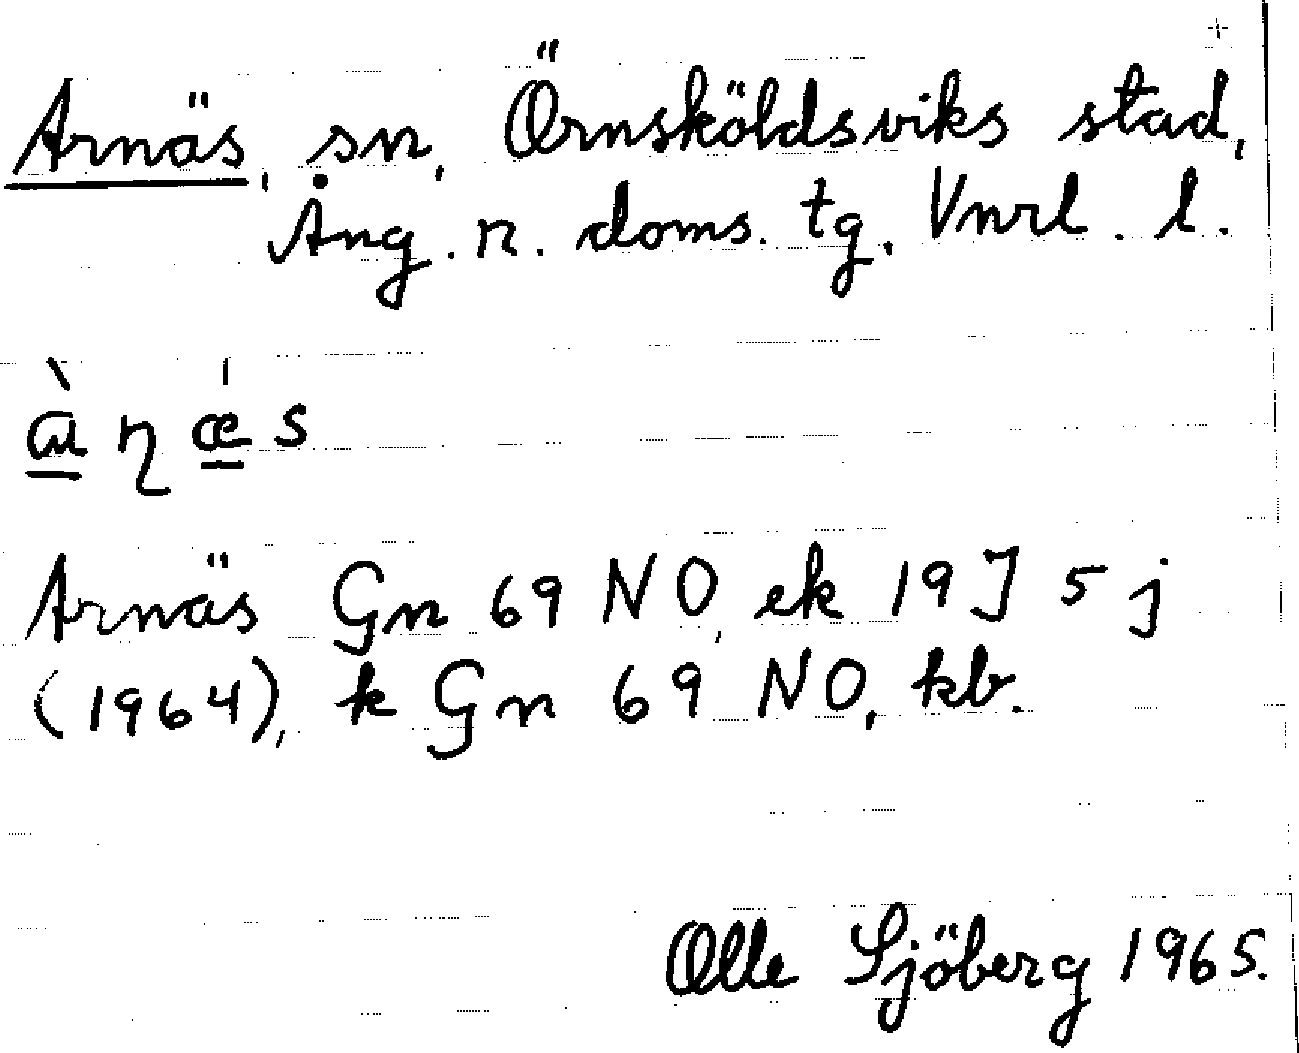 Arnäs, sn, Örnsköldsviks stad,
Ång. n. doms. tg, Vnrl. l.
ὰ̱ɳǽ̱s
Arnäs Gn 69 NO, ek 19J 5 j
(1964), k Gn 69 NO, kb.
Olle Sjöberg 1965.